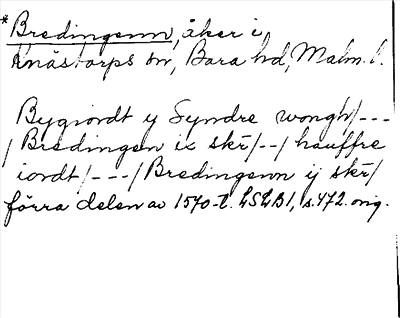 *Bredingenn, åker i
Knästorps sn, Bara hd, Malm. l.
Bygiordt y Syndre wongh/---
/Bredingen ix skr/--/hauffre
iordt/---/Bredingenn ij skr/
förra delen av 1570-t. LSLB1, s. 472. orig.